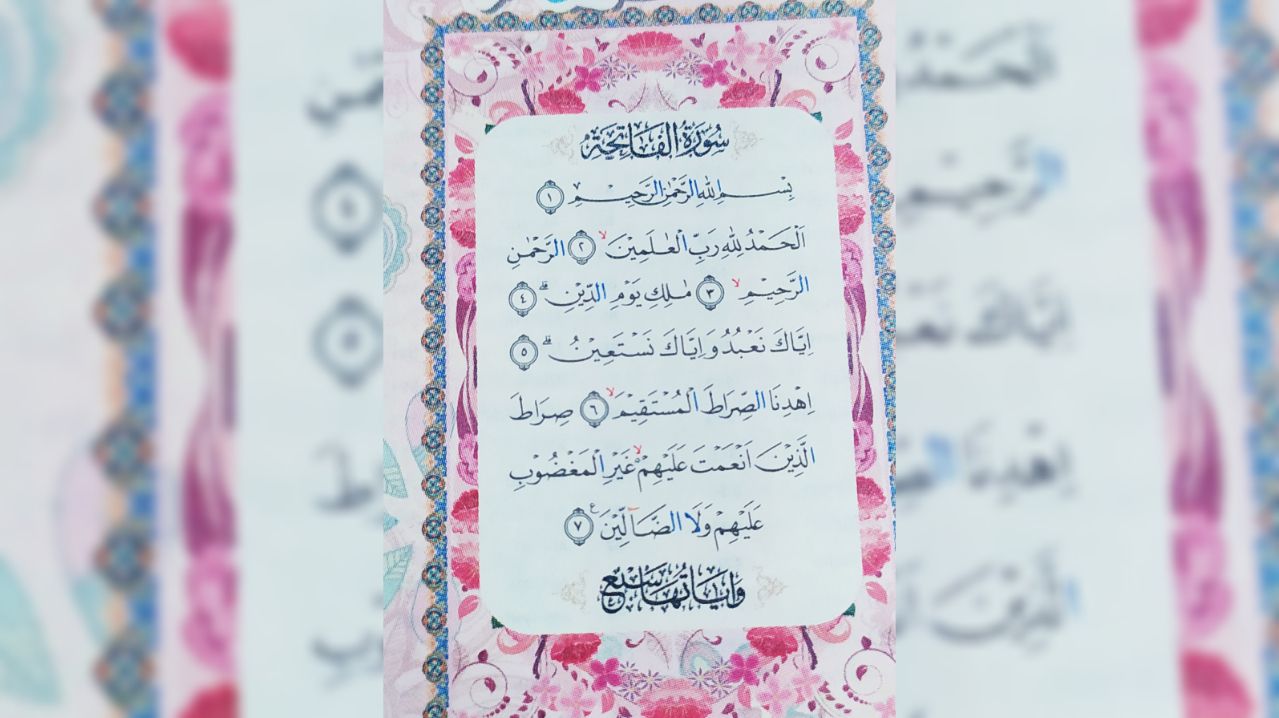 سُوْرَةُ الْفَاتِحَةِ
بِسْمِ اللّٰهِ الرَّحْمٰنِ الرَّحِيْمِ ۝١
اَلْحَمْدُ لِلّٰهِ رَبِّ الْعٰلَمِيْنَۙ ۝٢ الرَّحْمٰنِ
الرَّحِيْمِۙ ۝٣ مٰلِكِ يَوْمِ الدِّيْنِۗ ۝٤
اِيَّاكَ نَعْبُدُ وَاِيَّاكَ نَسْتَعِيْنُۗ ۝٥
اِهْدِنَا الصِّرَاطَ الْمُسْتَقِيْمَۙ ۝٦ صِرَاطَ
الَّذِيْنَ اَنْعَمْتَ عَلَيْهِمْۙ غَيْرِ الْمَغْضُوْبِ
عَلَيْهِمْ وَلَا الضَّاۤلِّيْنَࣖ ۝٧
وَاٰيَاتُهَا سَبْعٌ